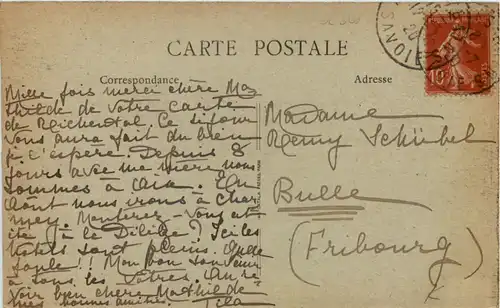 CARTE POSTALE
Correspondance
Adresse
Mille fois merci chère Ma
thilde de votre carte
de Reichental. Ce séjour
vous aura fait du bien
je l'espère. Depuis 8
jours avec ma mère nous
sommes à Aix. En
août nous irons à cha
mey. Monterez-vous et
ité à la Ici les
hôtels sont pleins. Quelle
foule! Mon bon souvenir
à tous les vôtres. Au re
voir bien chère Mathilde
mes bonnes amitiés.
Madame
Remy Schübel
Bulle
(Fribourg)
SAVOIE
10